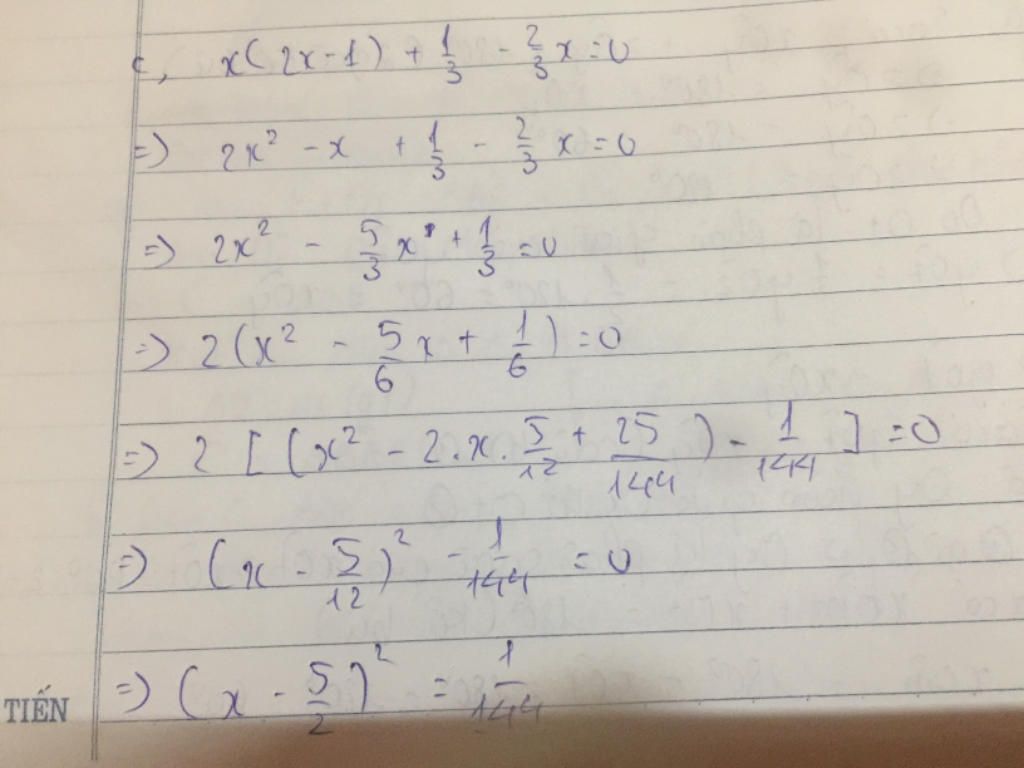 c, x(2x-1) + 1/3 - 2/3 x = 0
=) 2x² - x + 1/3 - 2/3 x = 0
=) 2x² - 5/3 x + 1/3 = 0
=) 2(x² - 5/6 x + 1/6) = 0
=) 2 [(x² - 2.x.5/12 + 25/144) - 1/144] = 0
=) (x - 5/12)² - 1/144 = 0
=) (x - 5/2)² = 1/144
TIẾN